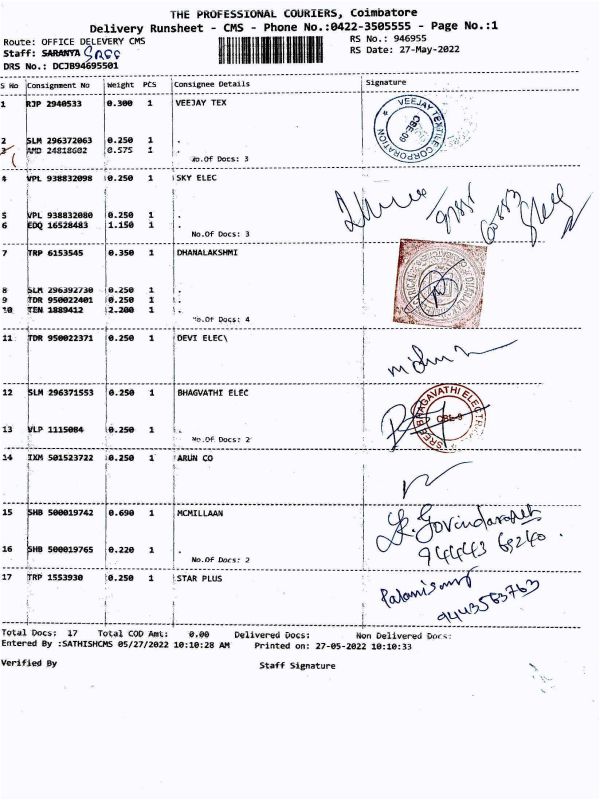 THE PROFESSIONAL COURIERS, Coimbatore
Delivery Runsheet - CMS - Phone No.:0422-3505555 - Page No.:1
Route: OFFICE DELEVERY CMS
RS No.: 946955
Staff: SARANYA
RS Date: 27-May-2022
DRS No.: DCJB94695501
S No Consignment No Weight PCS Consignee Details Signature
1 RJP 2940533 0.300 1 VEEJAY TEX
VEEJAY TEXTILE CORPORATION
CBE-09
2 SLM 296372063 0.250 1 .
3 AMD 24818602 0.575 1 .
No.Of Docs: 3
4 VPL 938832098 0.250 1 SKY ELEC
5 VPL 938832080 0.250 1 .
6 EDQ 16528483 1.150 1 .
No.Of Docs: 3
7 TRP 6153545 0.350 1 DHANALAKSHMI
8 SLM 296392730 0.250 1 .
9 TDR 950022401 0.250 1 .
10 TEN 1889412 2.200 1 .
No.Of Docs: 4
11 TDR 950022371 0.250 1 DEVI ELEC\
12 SLM 296371553 0.250 1 BHAGVATHI ELEC
SREE BHAGAVATHI ELECTRI
CBE-9
13 VLP 1115084 0.250 1 .
No.Of Docs: 2
14 IXM 501523722 0.250 1 ARUN CO
15 SHB 500019742 0.690 1 MCMILLAAN
16 SHB 500019765 0.220 1 .
94443 69240.
No.Of Docs: 2
17 TRP 1553930 0.250 1 STAR PLUS
9443563763
Total Docs: 17 Total COD Amt: 0.00 Delivered Docs: Non Delivered Docs:
Entered By :SATHISHCMS 05/27/2022 10:10:28 AM Printed on: 27-05-2022 10:10:33
Verified By Staff Signature